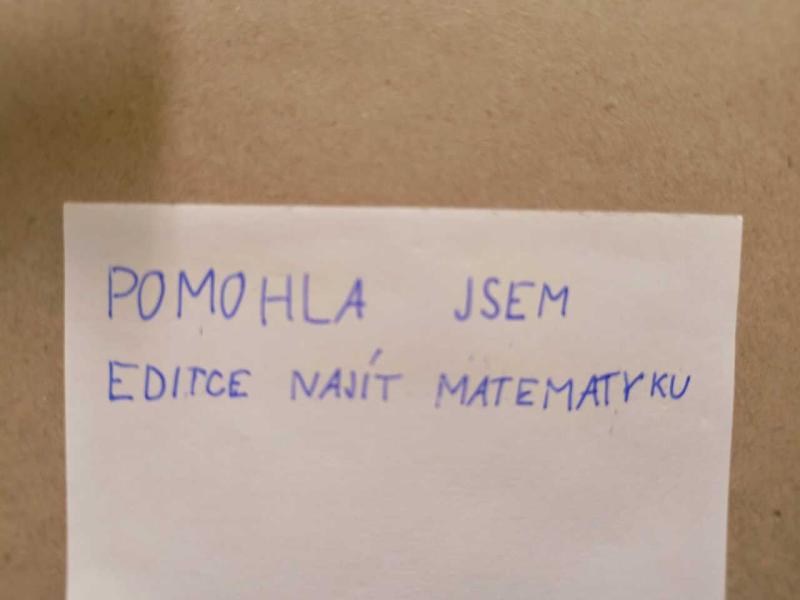 POMOHLA JSEM
EDITCE NAJÍT MATEMATYKU